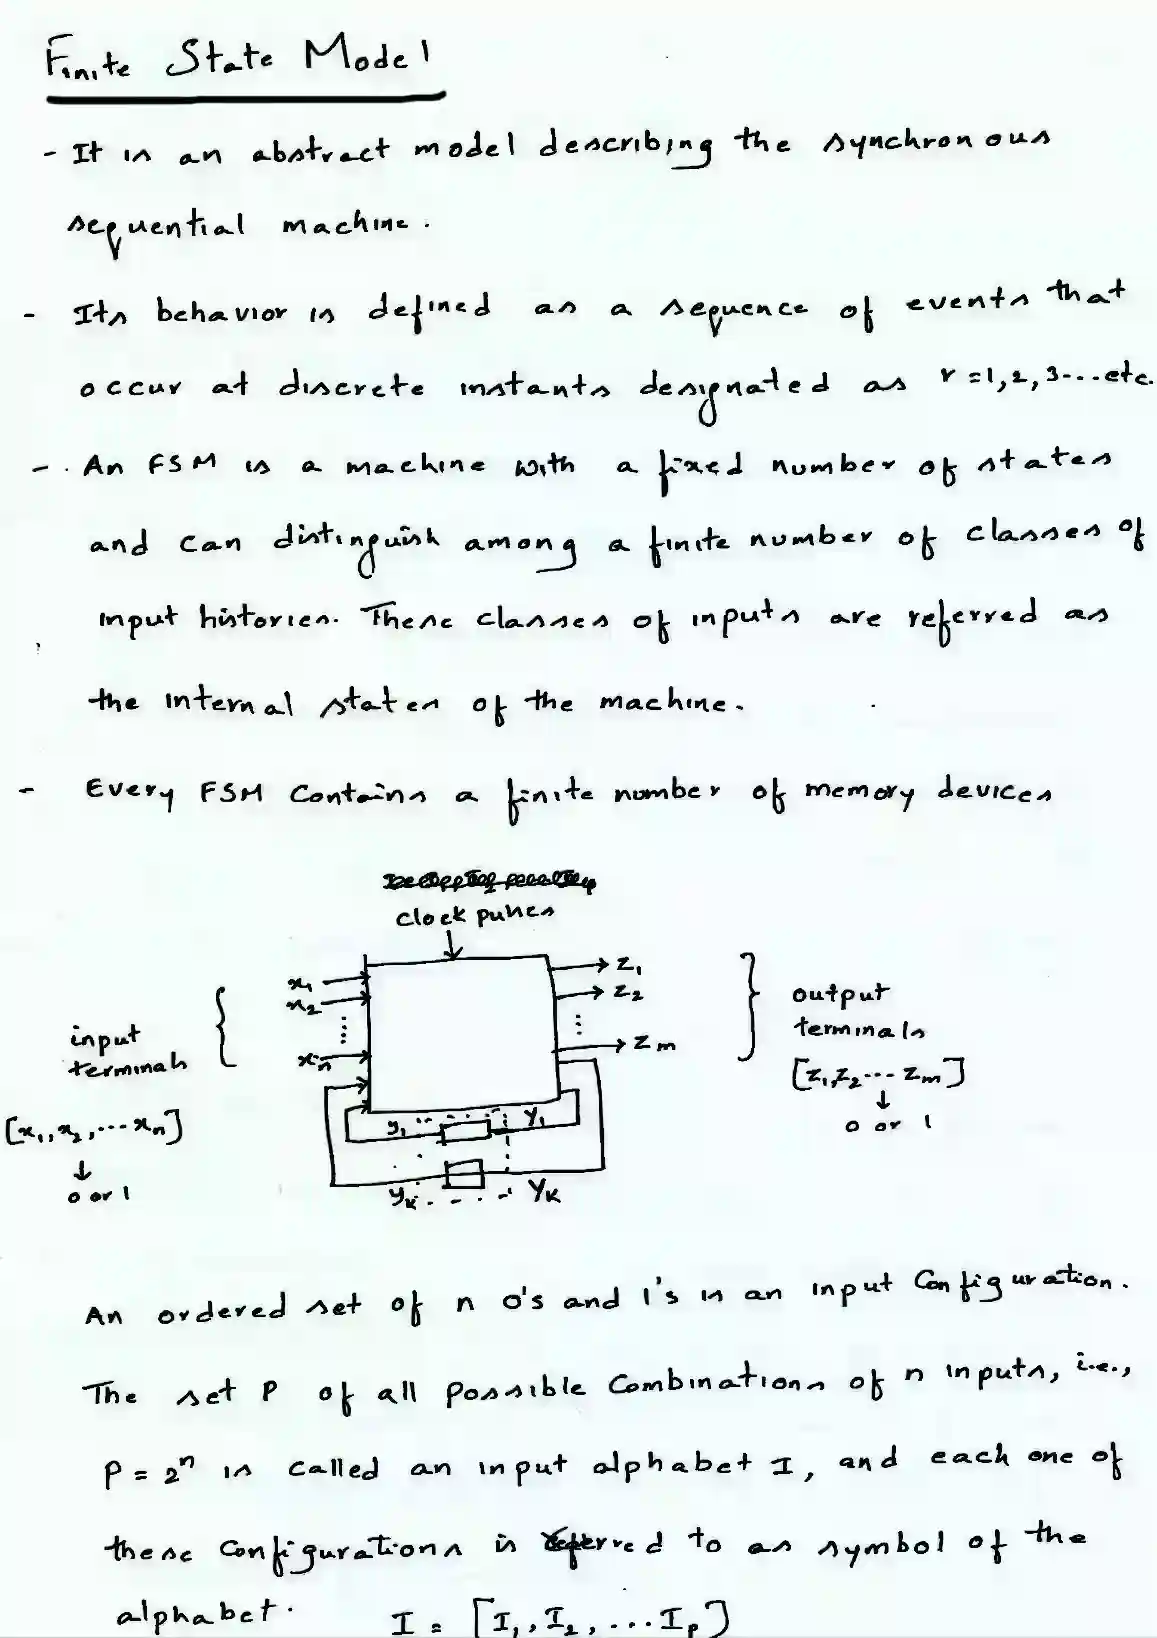 Finite State Model
- It is an abstract model describing the synchronous
sequential machine.
- Its behavior is defined as a sequence of events that
occur at discrete instants designated as r=1,2,3---etc.
- An FSM is a machine with a fixed number of states
and can distinguish among a finite number of classes of
input histories. These classes of inputs are referred as
the internal states of the machine.
- Every FSM contains a finite number of memory devices
clock pulses
x₁
x₂
xₙ
input
terminals
[x₁, x₂, ... xₙ]
↓
0 or 1
z₁
z₂
zₘ
output
terminals
[z₁, z₂ --- zₘ]
↓
0 or 1
y₁ Y₁
yₖ Yₖ
An ordered set of n 0's and 1's is an input configuration.
The set P of all possible combinations of n inputs, i.e.,
P = 2ⁿ is called an input alphabet I, and each one of
these configurations is referred to as symbol of the
alphabet. I = [I₁, I₂, ... Iₚ]